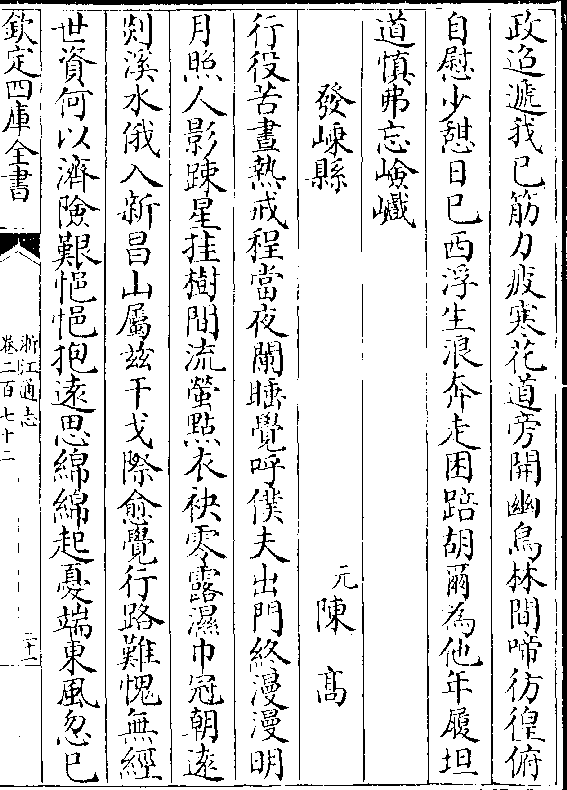 政迢遞我已筋力疲寒花道旁開幽鳥林間啼彷徨俯
自慰少憇日已西浮生浪奔走困踣胡爾為他年履坦
道慎弗忘嶮巇
發嵊縣　元陳高
行役苦晝熱戒程當夜闌睡覺呼僕夫出門終漫漫明
月照人影踈星挂樹間流螢點衣袂零露濕巾冠朝逺
剡溪水俄入新昌山屬兹干戈際愈覺行路難愧無經
世資何以濟險艱悒悒抱逺思綿綿起憂端東風忽已
欽定四庫全書
浙江通志
卷二百七十二
三十一